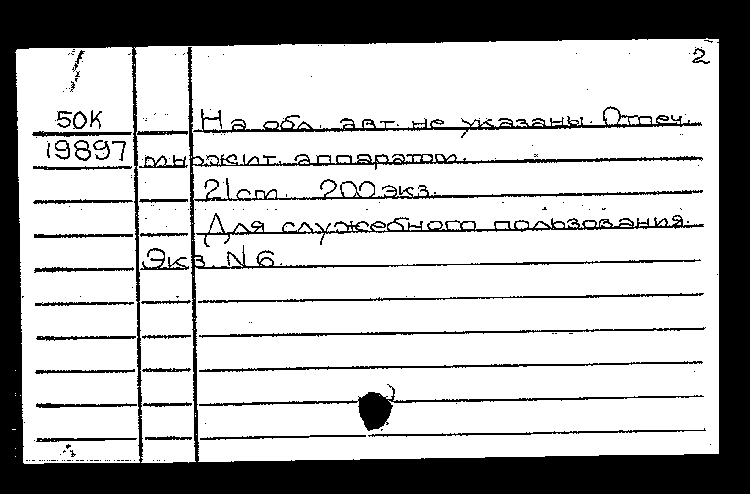 2
50К На обл. авт. не указаны. Отпеч.
19897 множит. аппаратом.
21 cm. 200 экз.
Для служебного пользования.
Экз. N 6.